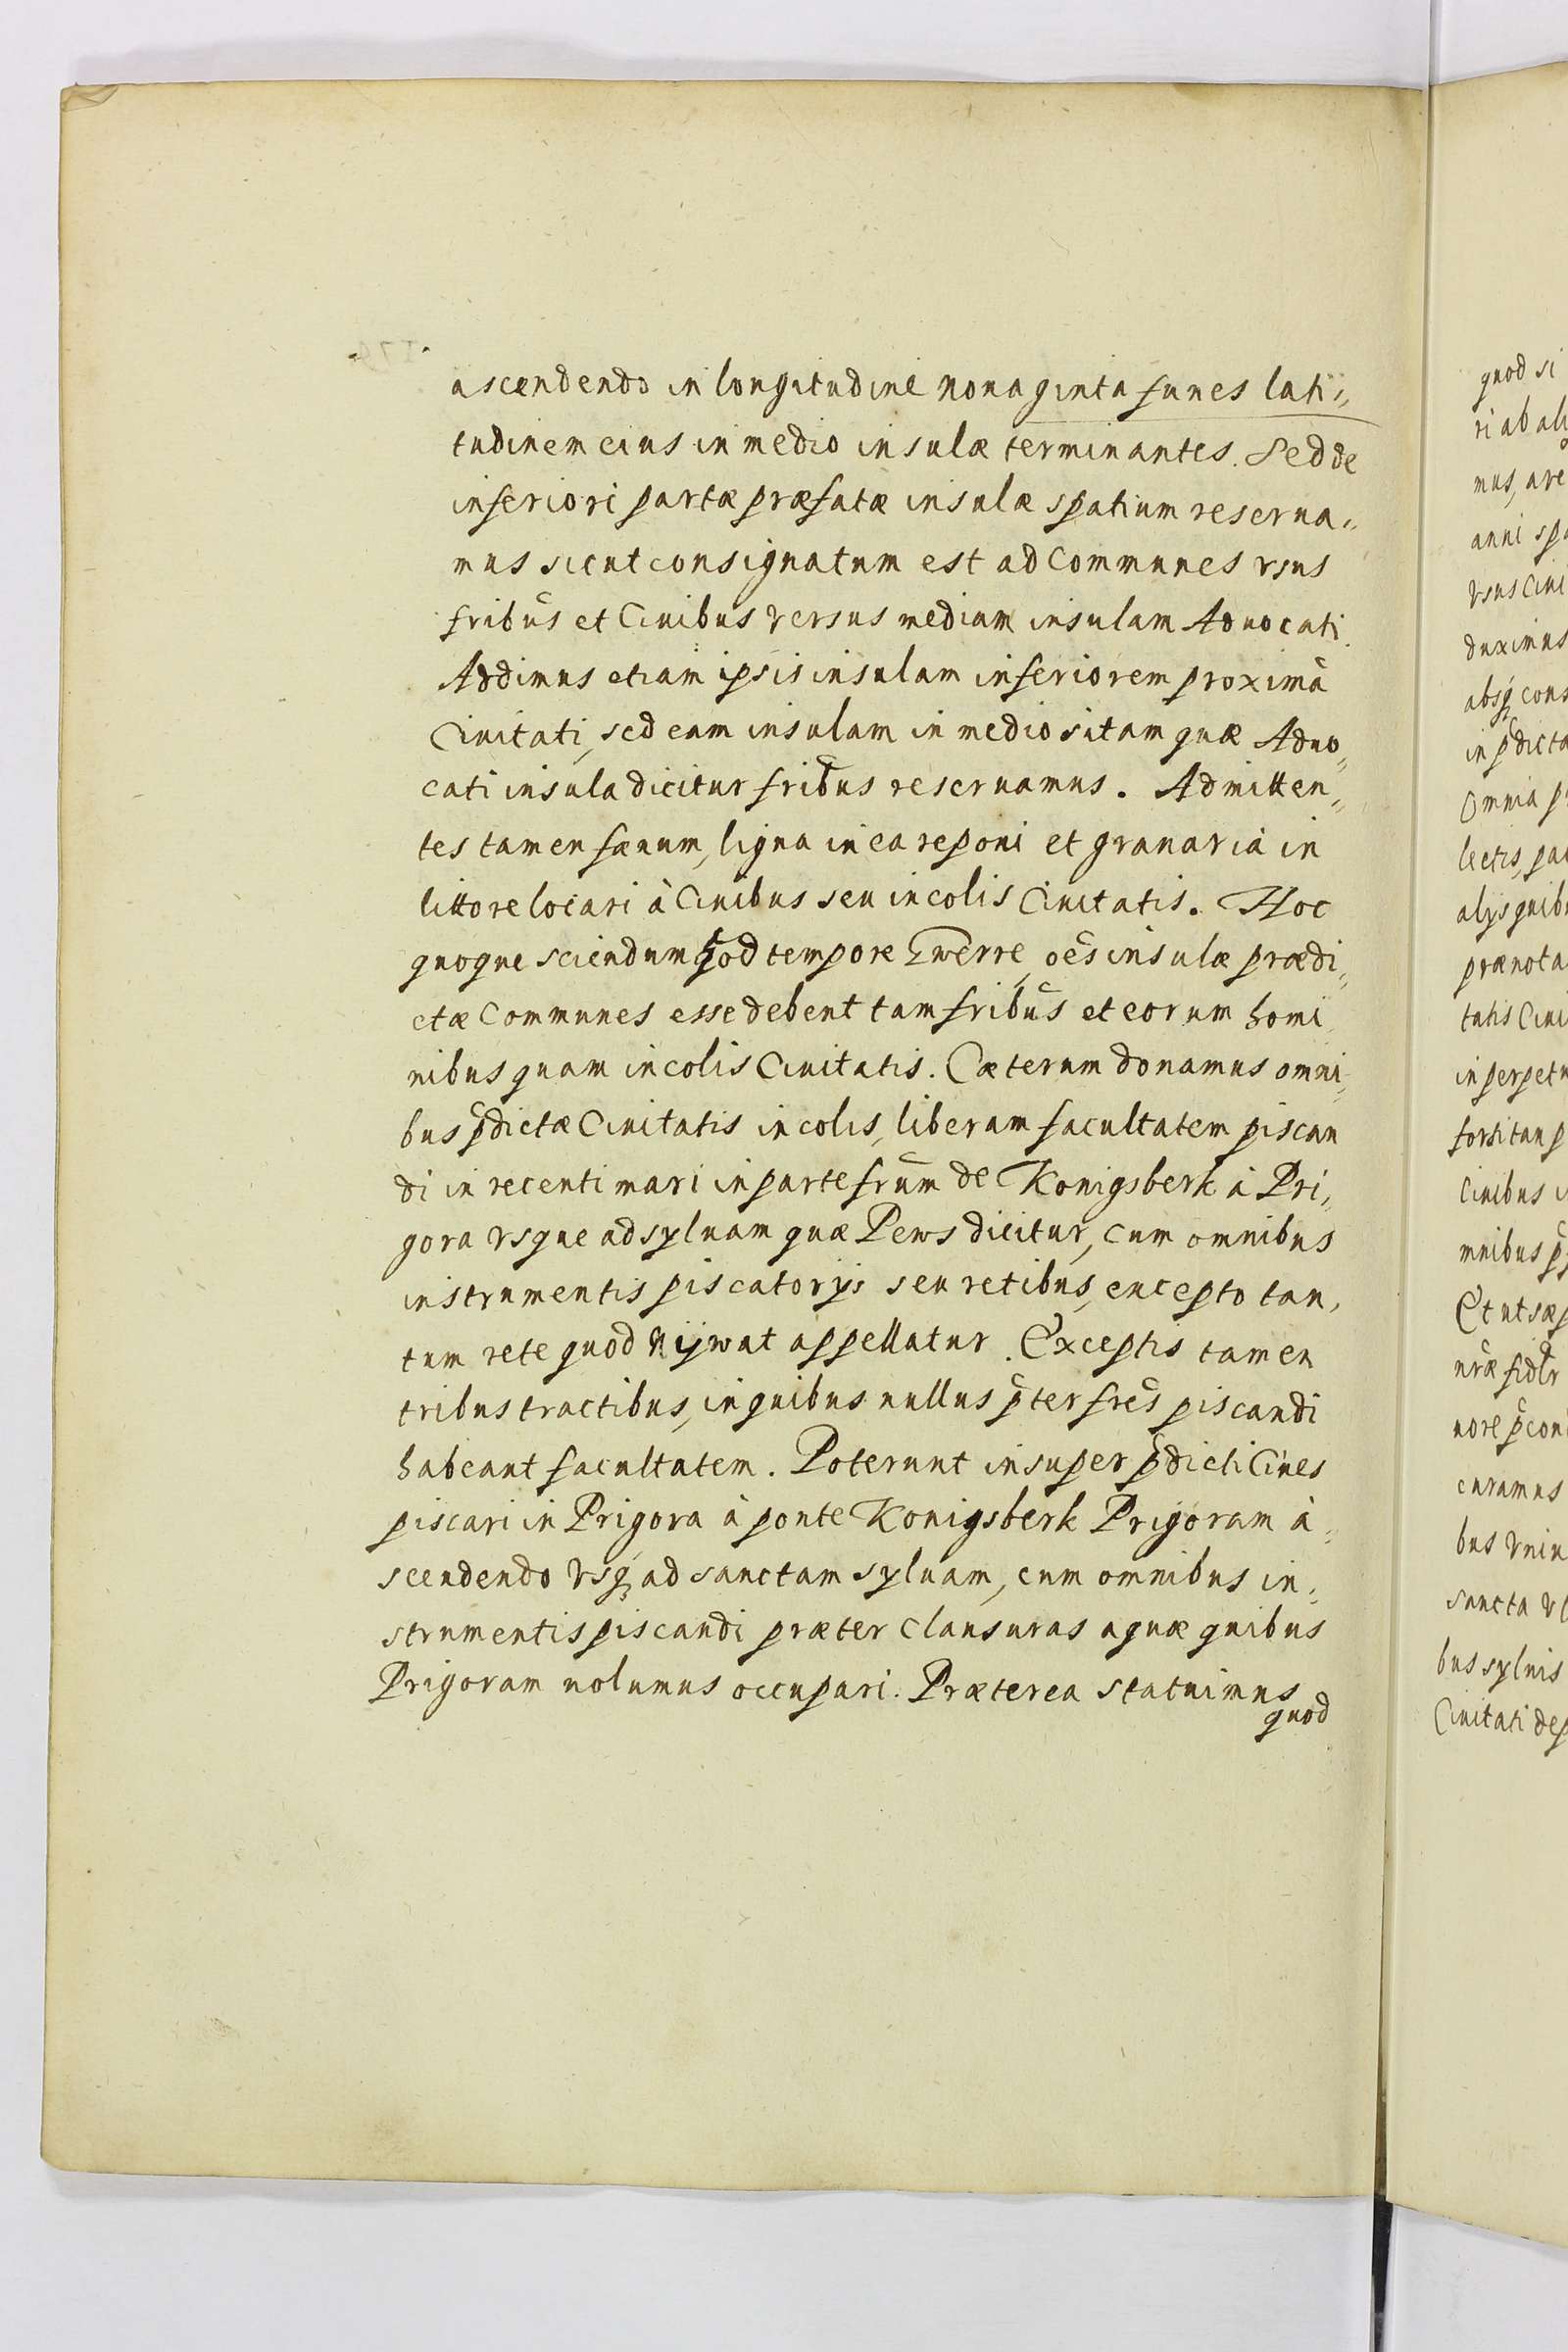 ascendendo in longitudine nonaginta funes lati„
tudinem eius in medio insulæ terminantes. Sed de
inferiori partæ præfatæ insulæ spatium reserua„
mus sicut consignatum est ad Communes vsus
fribūs et Ciuibus versus mediam insulam Aduocati.
Addimus etiam ipsis insulam inferiorem proximā
Ciuitati, sed eam insulam in medio sitam quæ Aduo„
cati insula dicitur fribūs reseruamus. Admitten„
tes tamen fænum, ligna in ea reponi et granaria in
littore locari à Ciuibus seu incolis Ciuitatis. Hoc
quoque sciendum qod tempore Gwerre, oēs insulæ prædi„
ctæ Communes esse debent tam fribūs et eorum homi
nibus quam incolis Ciuitatis. Cæterum donamus omni„
bus p̄dictæ Ciuitatis incolis, liberam facultatem piscan
di in recenti mari in parte frūm de Konigsberk à Pri„
gora vsque ad syluam quæ Pews dicitur, cum omnibus
instrumentis piscatorijs seu retibus, encepto tan„
tum rete quod nijwat appellatur. Exceptis tamen
tribus tractibus, in quibus nullus p̄ter frēs piscandi
habeant facultatem. Poterunt insuper p̄dicti Ciues
piscari in Prigora à ponte Konigsberk Prigoram à„
scendendo vsq; ad sanctam syluam, cum omnibus in„
strumentis piscandi præter clausuras aquæ quibus
Prigoram nolumus occupari. Præterea statuimus
quod
quod si
ri ab ali
mus, are
anni spa
vsus Ciui
duximus
absq; cons
in p̄dicta
Omnia p
lectis, pa
alijs quibu
prænota
tatis Ciui
in perpetu
forsitan p
Ciuibus i
mnibus p̄
Et ut sæp
nr̄æ fidlr
nore p̄con
curamus
bus vniu
sancta vl
bus syluis
Ciuitati dep